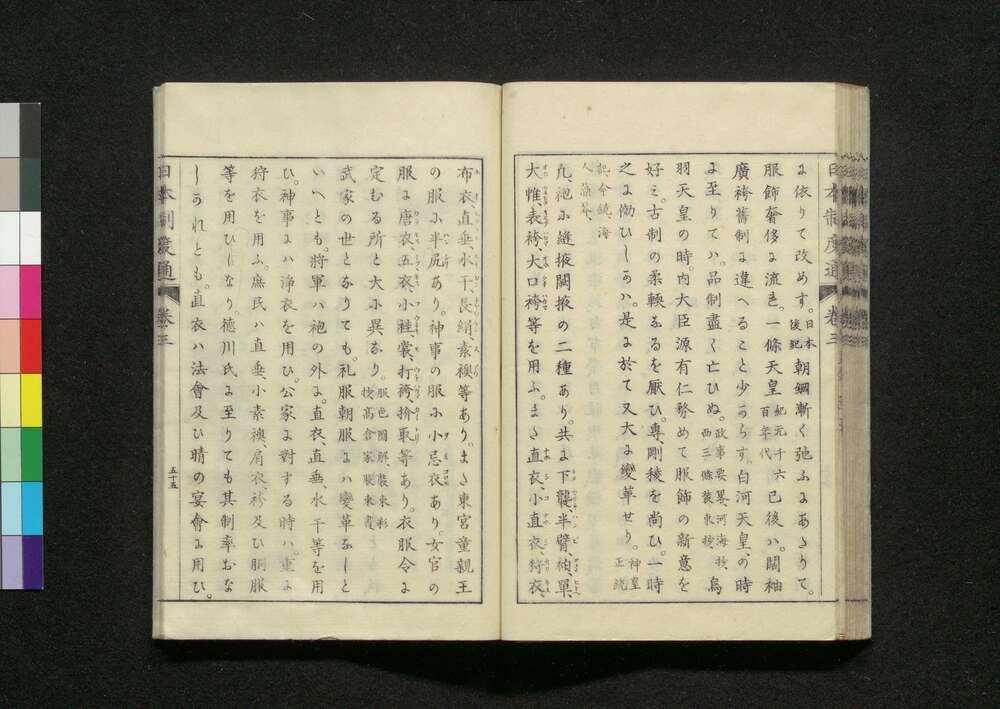 日本制度通 卷三
に依りて改めす。日本後紀朝綱漸く弛ふにあたりて。
服飾奢侈に流き。一條天皇紀元千六百年代已後ハ。闊袖
廣袴舊制に違へること少からす。白河天皇、の時
に至りてハ。品制盡く亡ひぬ。故事要畧、河海抄、西三條裝束抄、鳥
羽天皇の時。内大臣源有仁務めて服飾の新意を
好ミ。古制の柔輭なるを厭ひ。專、剛稜を尚ひ。一時
之に倣ひしかハ。是に於て又大に變革せり。神皇正統
記、今鏡、海人藻芥、
凡、袍に縫掖闕掖の二種あり。共に下襲、半臂、衵、單、
大帷、表袴、大口袴等を用ふ。また直衣、小直衣、狩衣、
布衣、直垂、水干、長絹、素襖等あり。また東宮童親王
の服に半尻あり。神事の服に小忌衣あり。女官の
服に唐衣、五衣、小袿、裳、打袴、扴取等あり。衣服令に
定むる所と大に異なり。服色圖解、裝束彩
武家の世となりても。礼服朝服にハ變革なしと
いへとも。將軍ハ袍の外に。直衣、直垂、水干等を用
ひ。神事にハ淨衣を用ひ。公家に對する時ハ。重に
狩衣を用ふ。庶民ハ直垂、小素襖、肩衣、衫及ひ胴服
等を用ひしなり。德川氏に至りても其制率むな
しかれとも。直衣ハ法會及ひ晴の宴會に用ひ。
日本制度通 卷三
五十五